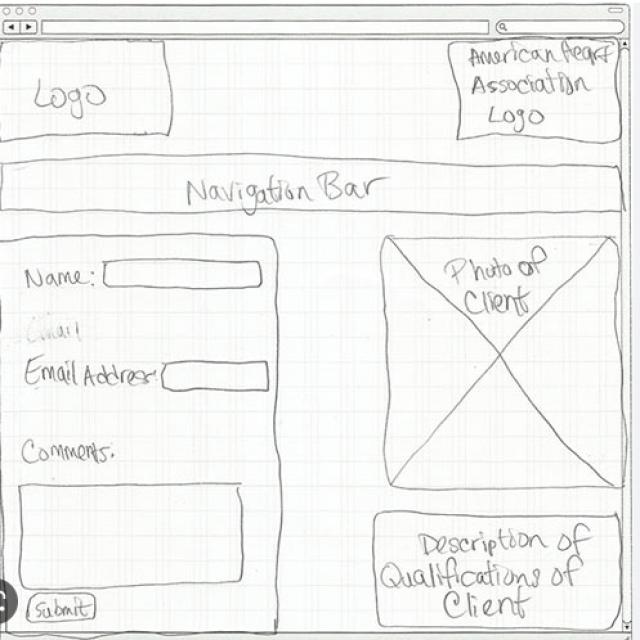 Logo
American Heart
Association
Logo
Navigation Bar
Name:
Email
Email Address:
Comments:
Submit
Photo of
Client
Description of
Qualifications of
Client